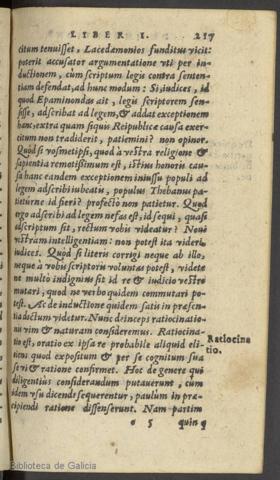 LIBER I. 217
citum tenuisset, Lacedæmonios funditus vicit:
poterit accusator argumentatione vti per in-
ductionem, cùm scriptum legis contra senten-
tiam defendat, ad hunc modum: Si, iudices, id
quod Epaminondas ait, legis scriptorem sen-
sisse, adscribat ad legem, & addat exceptionem
hanc, extra quam siquis Reipublicæ causa exer-
citum non tradiderit, patiemini? non opinor.
Quòd si vosmetipsi, quod à vestra religione &
sapientia remotißimum est, istius honoris cau-
sa hanc eandem exceptionem iniussu populi ad
legem adscribi iubeatis, populus Thebanus pa-
tieturne id fieri? profectò non patietur. Quod
ergo adscribi ad legem nefas est, id sequi, quasi
adscriptum sit, rectum vobis videatur? Noui
vestram intelligentiam: non potest ita videri,
iudices. Quòd si literis corrigi neque ab illo,
neque à vobis scriptoris voluntas potest, videte
ne multo indignius sit id re & iudicio vestro
mutari, quod ne verbo quidem commutari po-
test. Ac de inductione quidem satis in præsen-
tia dictum videtur. Nunc deinceps ratiocinatio-
nis vim & naturam consideremus. Ratiocina-
tio est, oratio ex ipsa re probabile aliquid eli-
ciens quod expositum & per se cognitum sua
se vi & ratione confirmet. Hoc de genere qui
diligentius considerandum putauerunt, cùm
idem vsu dicendi sequerentur, paulùm in præ-
cipiendi ratione dissenserunt. Nam partim
Ratiocina
tio.
o 5 quinq
Biblioteca de Galicia